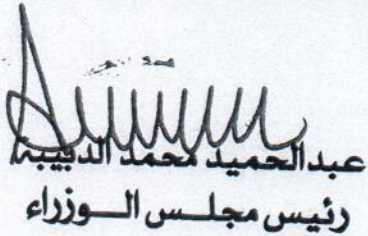 عبدالحميد محمد الدبيبة
رئيس مجلس الوزراء